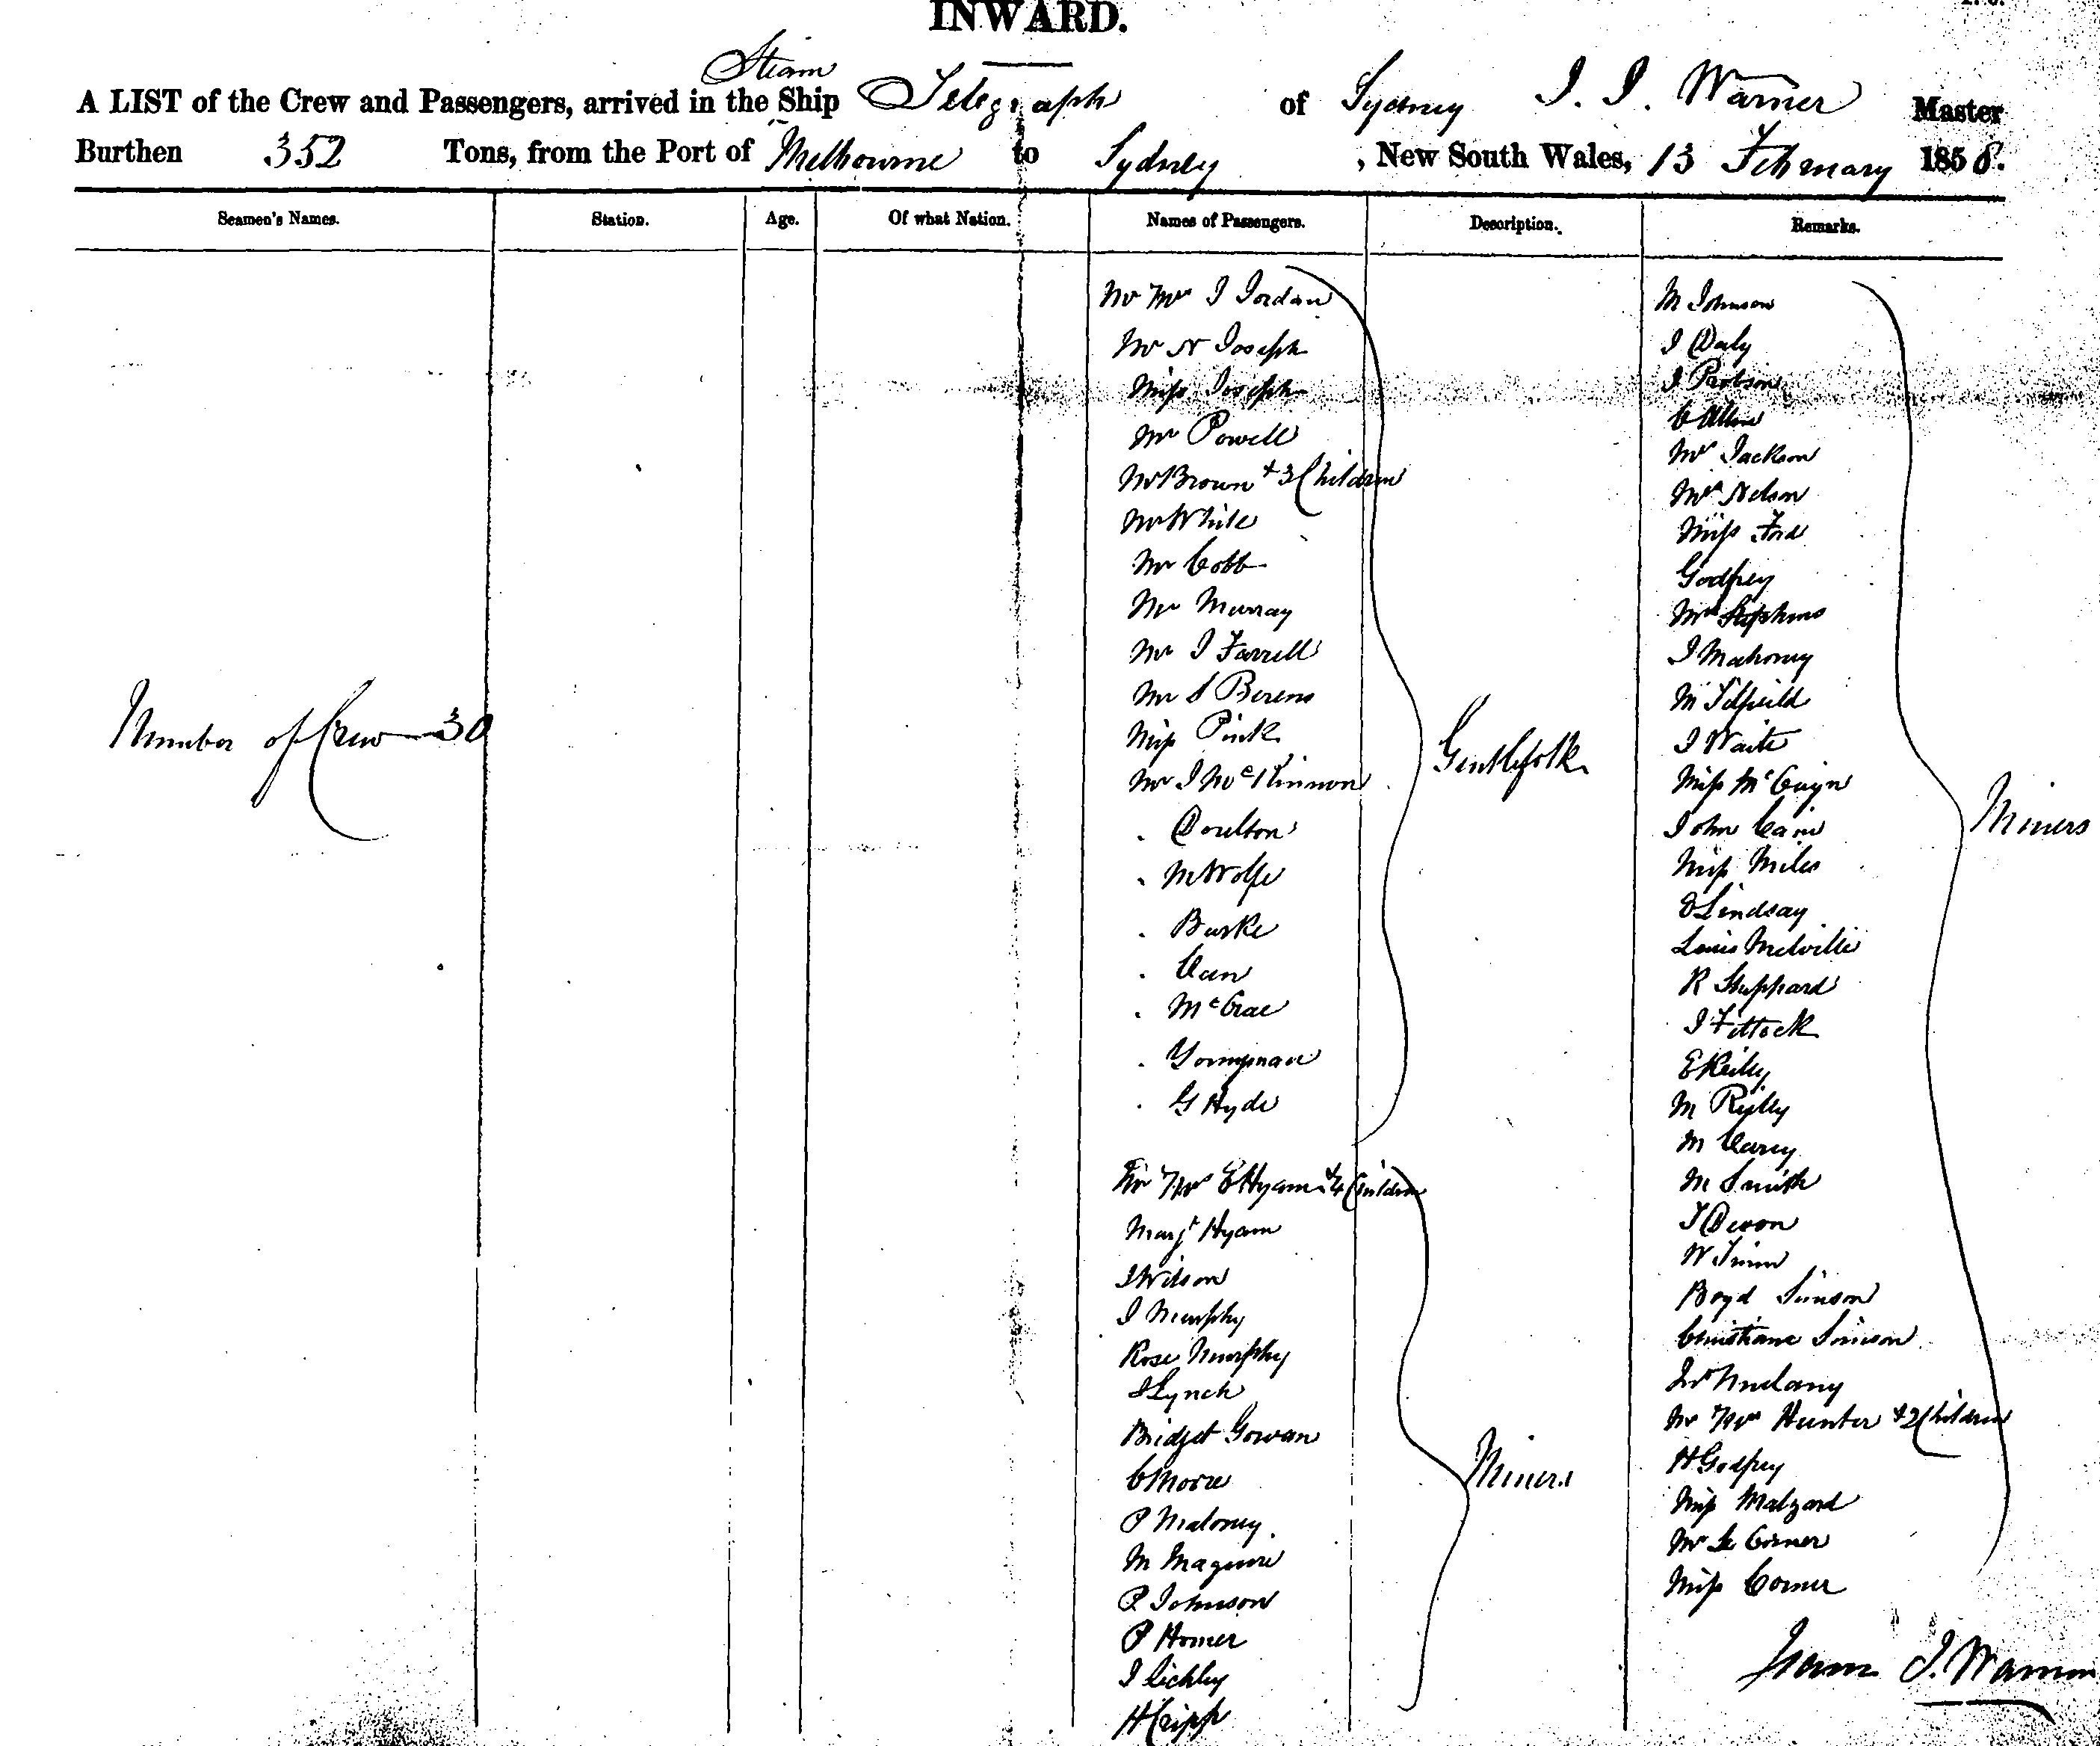 INWARD.
Steam
A LIST of the Crew and Passengers, arrived in the Ship Telegraph of Sydney I. I. Warner Master
Burthen 352 Tons, from the Port of Melbourne to Sydney, New South Wales, 13 February 1858.
Seamen's Names. Station. Age. Of what Nation. Names of Passengers. Description. Remarks.
Number of Crew 30
Mr Mrs I Jordan
Mr N Joseph
Miss Joseph
Mr Powell
Mr Brown + 3 Children
Mr White
Mr Cobb
Mr Murray
Mr I Farrell
Mr S Berens
Miss Pink
Mr I McKinnon
. Doulton
. M Wolfe
. Burke
. Can
. McCrae
. Youngman
. G Hyde
Gentlefolk
Mr Mrs E Hyam + 4 Children
Margt Hyam
I Wilson
I Murphy
Rose Murphy
I Lynch
Bridget Gowan
C Moore
P Maloney
M Maguire
P Johnson
P Homer
I Lickley
H Cripp
Miners
M Johnson
I Daly
I Robson
C Allen
Mr Jackson
Mrs Nelson
Miss Ford
Godfrey
Mrs Stephens
I Mahoney
M Fifield
I Waite
Miss McGuyn
John Cain
Miss Miles
D Lindsay
Louis Melville
R Sheppard
I Fittock
E Reilly
M Reilly
M Carey
M Smith
T Devon
W
Boyd Simson
Christiane Simson
Mulany
Mr Mrs Hunter + 2 Children
H Godfrey
Miss Malzard
Mr Le Corner
Miss Corner
Miners
I. Warner